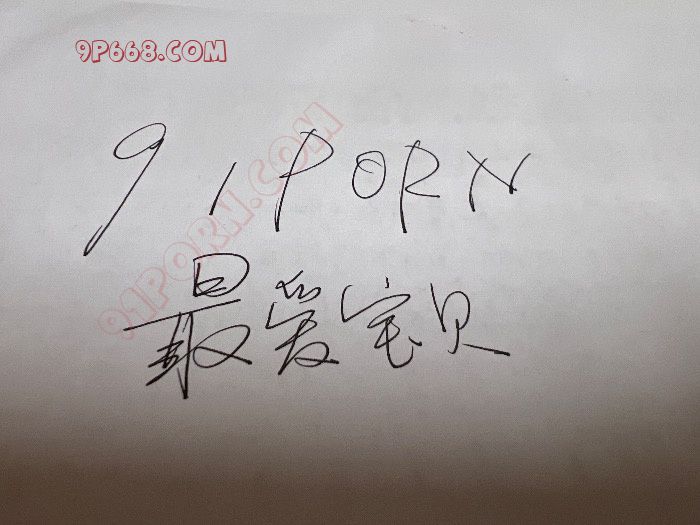 9P668.COM
91PORN
91PORN.COM
最爱宝贝